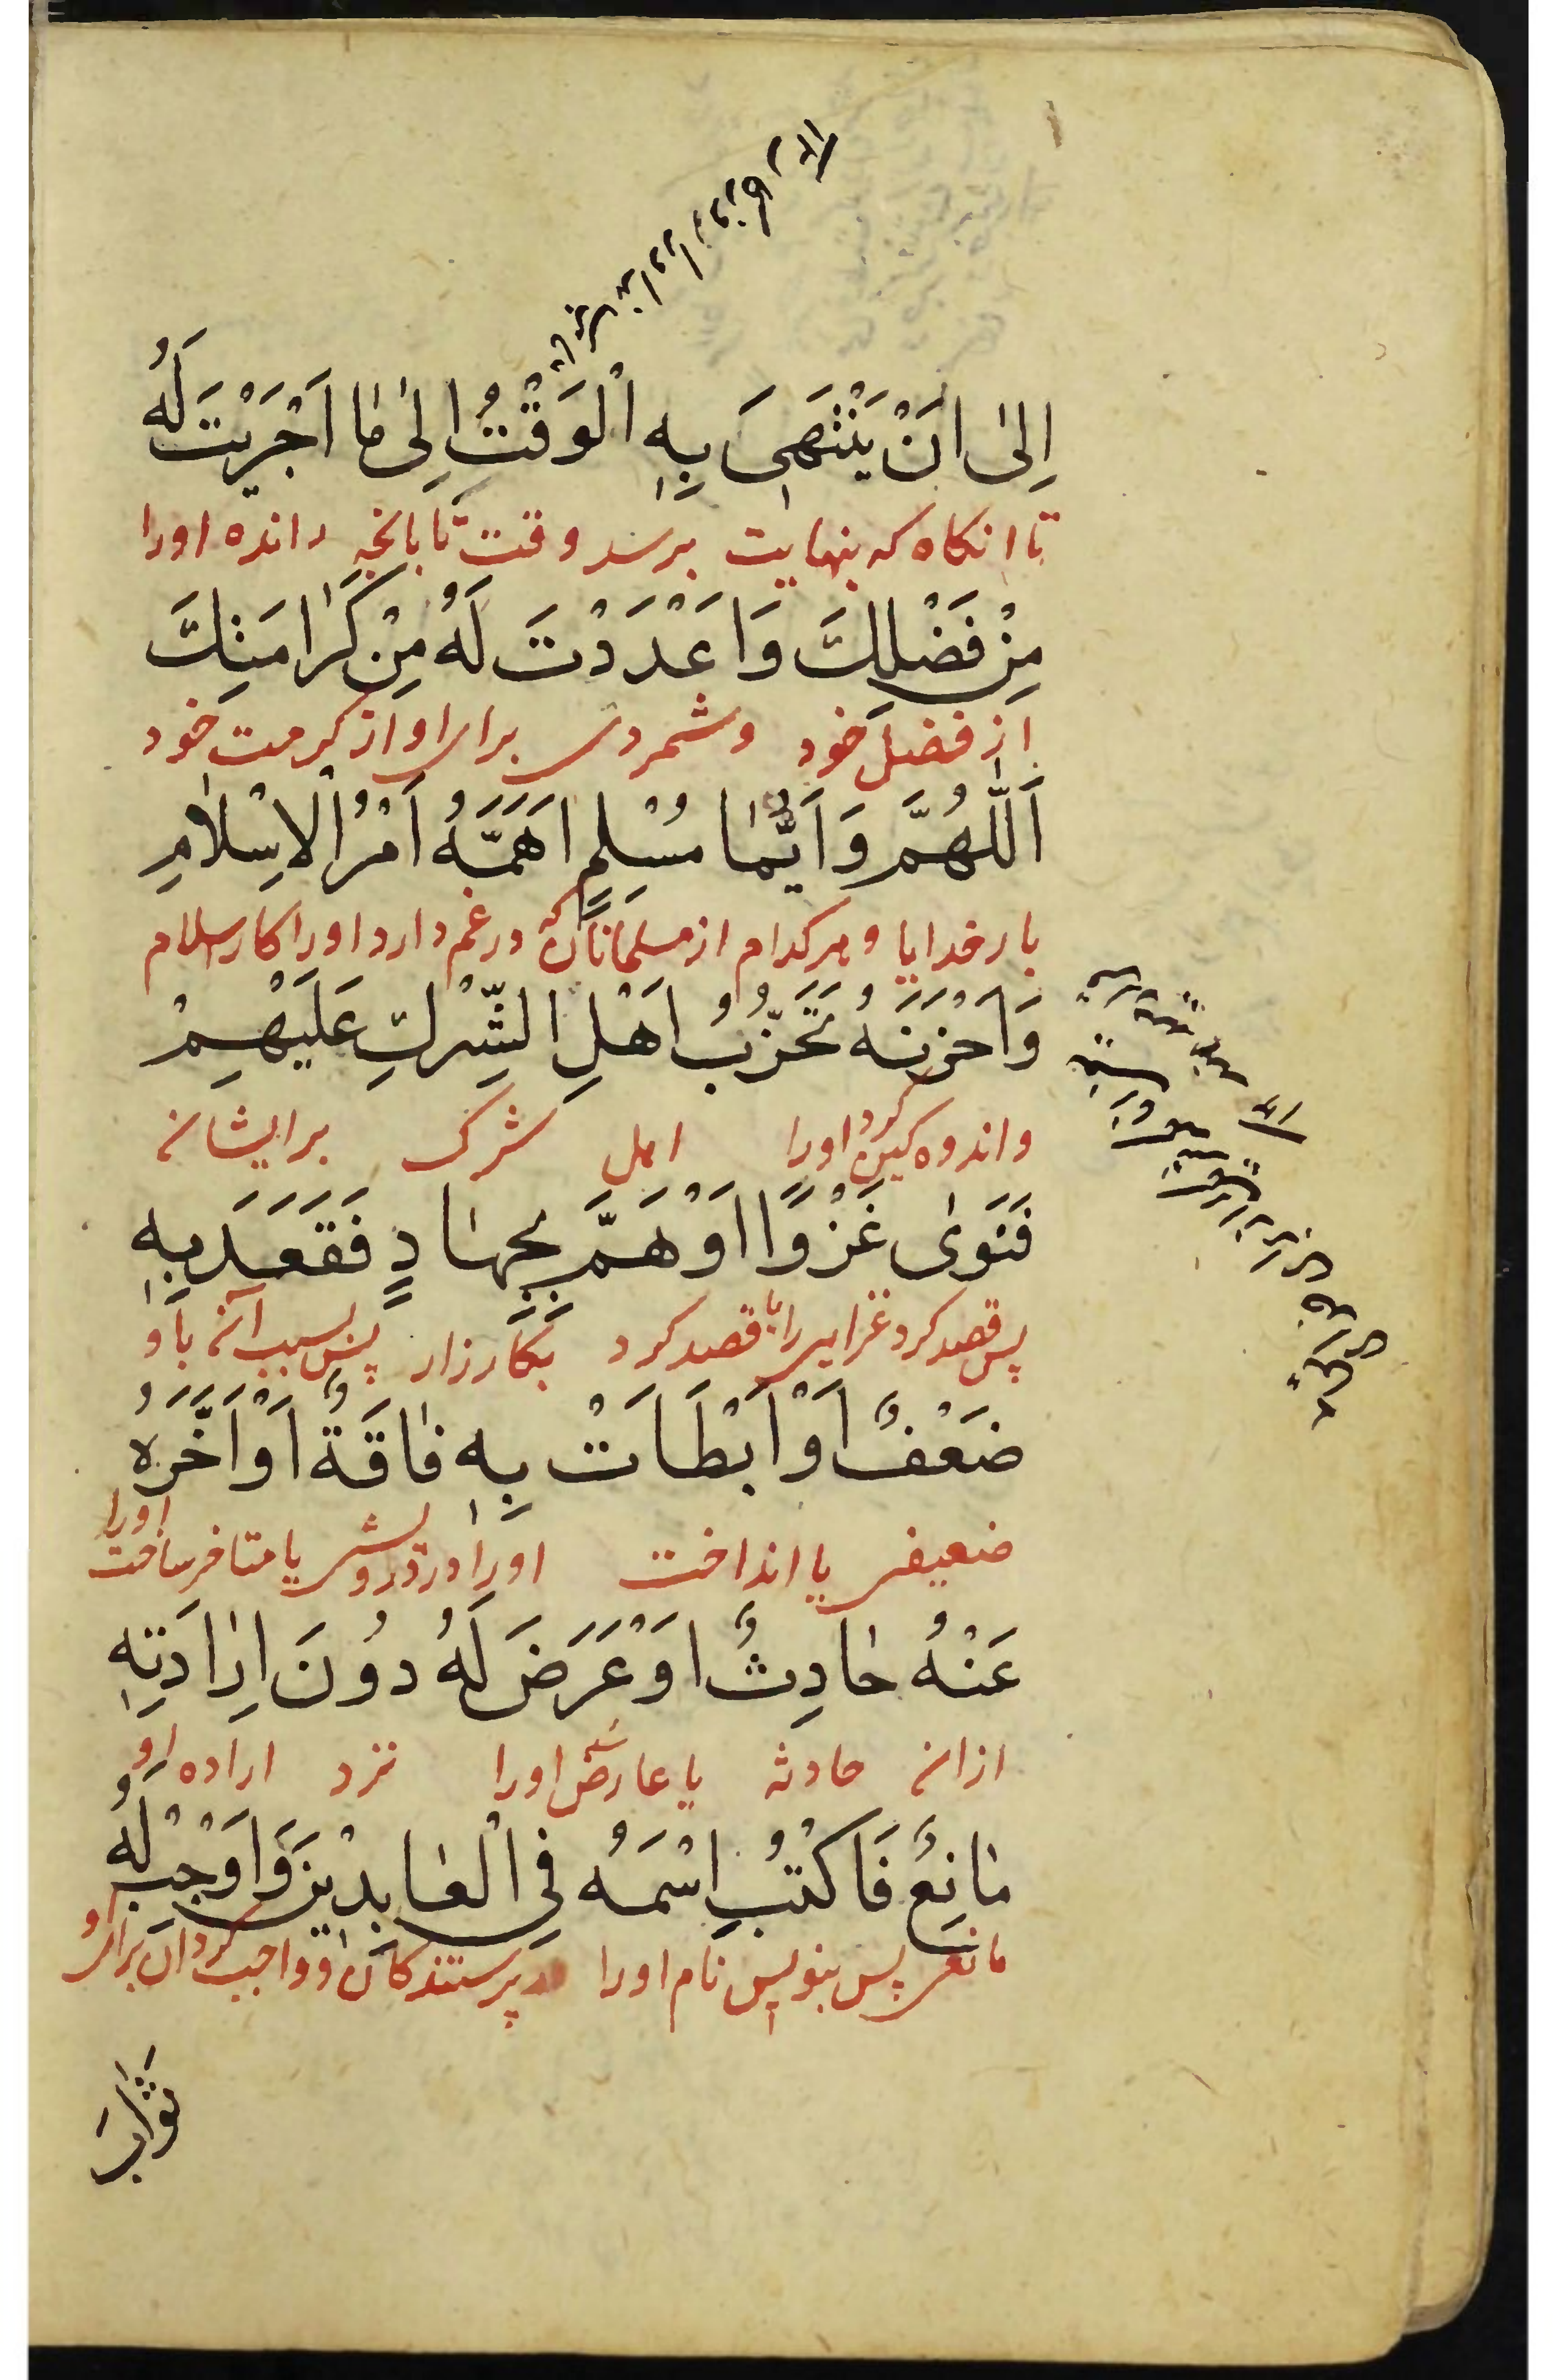 اِلىٰ اَنْ يَنْتَهِىَ بِهِ الْوَقْتُ اِلىٰ مٰا اَجْرَيْتَ لَهُ
تا انکاه که بنهایت برسد وقت تا بانچه رانده اورا
مِنْ فَضْلِكَ وَاَعْدَدْتَ لَهُ مِنْ كَرٰامَتِكَ
از فضل خود وشمردی برای او از کرمت خود
اَللّٰهُمَّ وَاَيُّمٰا مُسْلِمٍ اَهَمَّهُ اَمْرُ الْاِسْلٰامِ
بار خدایا و هرکدام از مسلمانان که درغم دارد اورا کار اسلام
وَاَحْزَنَهُ تَحَزُّبُ اَهْلِ الشِّرْكِ عَلَيْهِمْ
واندوه کین کرد اورا اهل شرک برایشانه
فَنَوىٰ غَزْوًا اَوْ هَمَّ بِجِهٰادٍ فَقَعَدَ بِهِ
پس قصد کرد غزایی را یا قصد کرد بکارزار پس بسبب آنه باو
ضَعْفٌ اَوْ اَبْطَاَتْ بِهِ فٰاقَةٌ اَوْ اَخَّرَهُ
ضعیفی یا انداخت اورا در درویشی یا متاخر ساخت اورا
عَنْهُ حٰادِثٌ اَوْ عَرَضَ لَهُ دُونَ اِرٰادَتِهِ
ازانه حادثه یا عارض شد اورا نزد اراده او
مٰانِعٌ فَاكْتُبِ اسْمَهُ فِى الْعٰابِدِيْنَ وَاَوْجِبْ لَهُ
مانعی پس بنویس نام اورا در پرستندکان و واجب کردان برای او
ثَوٰابَ